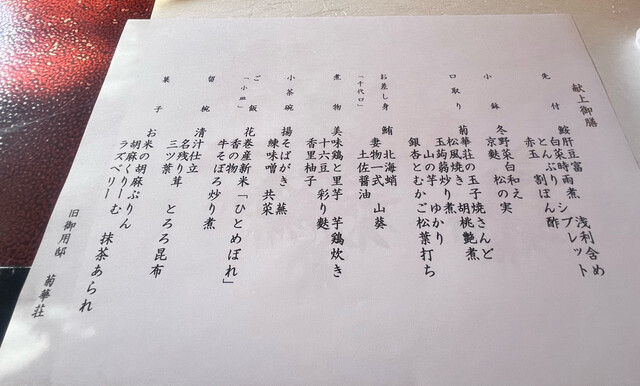 献上御膳
先付 鮟肝豆富 浅利含め
白菜時雨煮 シブレット
とんぶり割ぽん酢
赤玉
小鉢 冬野菜白和え
京麩 松の実
口取り 菊華荘の玉子焼さんど
松風焼き 胡桃艶煮
玉蒟蒻炒り煮
山の芋ゆかり
銀杏とむかご松葉打ち
お差し身 鮪 北海蛸
妻物一式 山葵
「千代口」 土佐醤油
煮物 美味鶏と里芋 芋鶏炊き
十六豆 彩り麩
香里柚子
小茶碗 揚そばがき 蕪
練味噌 共菜
ご飯 花巻産新米「ひとめぼれ」
香の物
「小皿」 牛そぼろ炒り煮
留椀 清汁仕立
名残り茸 とろろ昆布
三ツ葉
菓子 お米の胡麻ぷりん
胡麻くりーむ 抹茶あられ
ラズベリー
旧御用邸 菊華荘